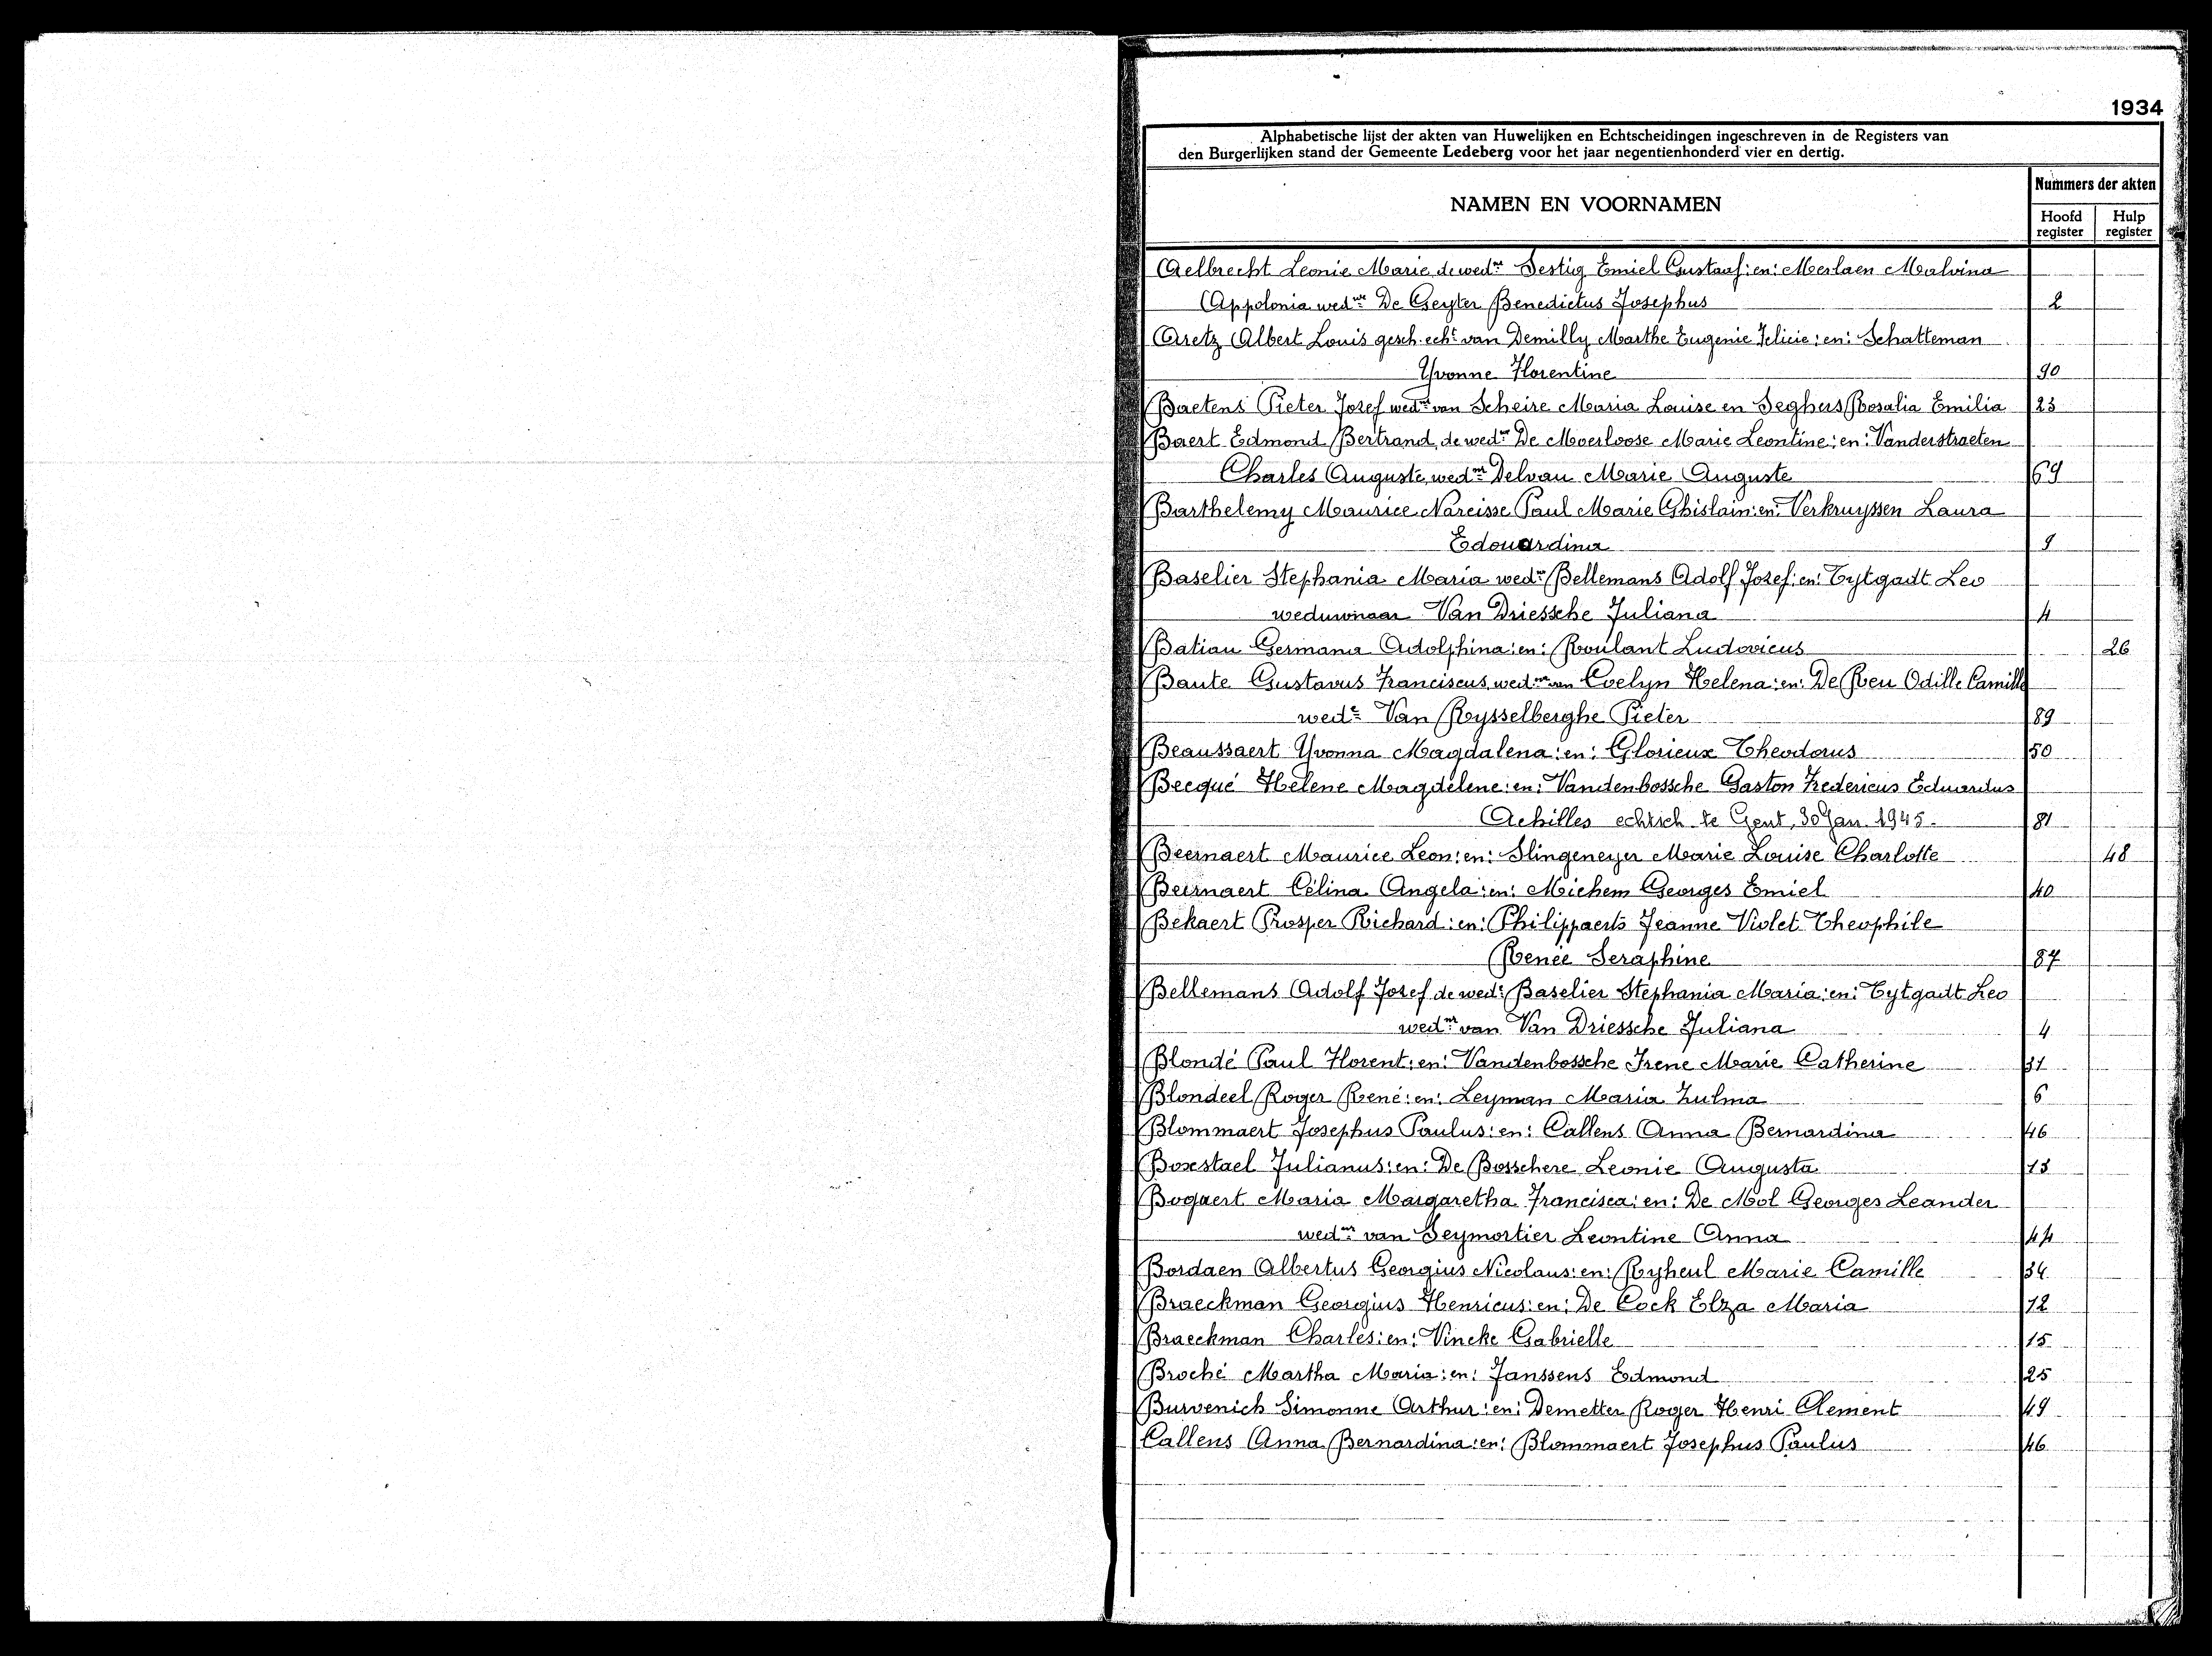 1934
Alphabetische lijst der akten van Huwelijken en Echtscheidingen ingeschreven in de Registers van
den Burgerlijken stand der Gemeente Ledeberg voor het jaar negentienhonderd vier en dertig.
NAMEN EN VOORNAMEN
Nummers der akten
Hoofd register
Hulp register
Aelbrecht Leonie Marie de wedr Emiel Gustaaf: en: Merlaen Malvina
Appolonia wedwe De Geyter Benedictus Josephus 2
Aretz Albert Louis gesch. echt van Demilly Marthe Eugenie Felicie: en: Schatteman
Yvonne Florentine 90
Baetens Pieter Jozef wedr van Scheire Maria Louise en Seghers Rosalia Emilia 23
Baert Edmond Bertrand, de wedr De Moerloose Marie Leontine: en: Vanderstraeten
Charles Auguste, wednr Delvau Marie Auguste 69
Barthelemy Maurice Narcisse Paul Marie Ghislain: en: Verkruyssen Laura
Edouardina 9
Baselier Stephania Maria wedwe Bellemans Adolf Jozef: en: Tytgadt Leo
weduwnaar Van Driessche Juliana 4
Batiau Germana Adolphina: en: Roulant Ludovicus 26
Baute Gustavus Franciscus, wednr van Evelyn Helena: en: De Reu Odille Camille
wede Van Rysselberghe Pieter 89
Beaussaert Yvonna Magdalena: en: Glorieux Theodorus 50
Becqué Hélène Magdélene: en: Vandenbossche Gaston Fredericus Eduardus
Achilles echtsch. te Gent, 30 Jan. 1945. 81
Beernaert Maurice Leon: en: Slingeneyer Marie Louise Charlotte 48
Beirnaert Célina Angela: en: Michem Georges Emiel 40
Bekaert Prosper Richard: en: Philippaerts Jeanne Violet Theophile
Renée Seraphine 87
Bellemans Adolf Jozef de wede Baselier Stephania Maria: en: Tytgadt Leo
wednr van Van Driessche Juliana 4
Blondé Paul Florent: en: Vandenbossche Irene Marie Catherine 31
Blondeel Roger René: en: Leyman Maria Zulma 6
Blommaert Josephus Paulus: en: Callens Anna Bernardina 46
Boxstael Julianus: en: De Bosschere Leonie Augusta 13
Bogaert Maria Margaretha Francisca: en: De Mol Georges Leander
wednr van Seymortier Leontine Anna 44
Bordaen Albertus Georgius Nicolaus: en: Ryheul Marie Camille 34
Braeckman Georgius Henricus: en: De Cock Elza Maria 12
Braeckman Charles: en: Vincke Gabrielle 15
Broché Martha Maria: en: Janssens Edmond 25
Burvenich Simonne Arthur: en: Demetter Roger Henri Clement 49
Callens Anna Bernardina: en: Blommaert Josephus Paulus 46